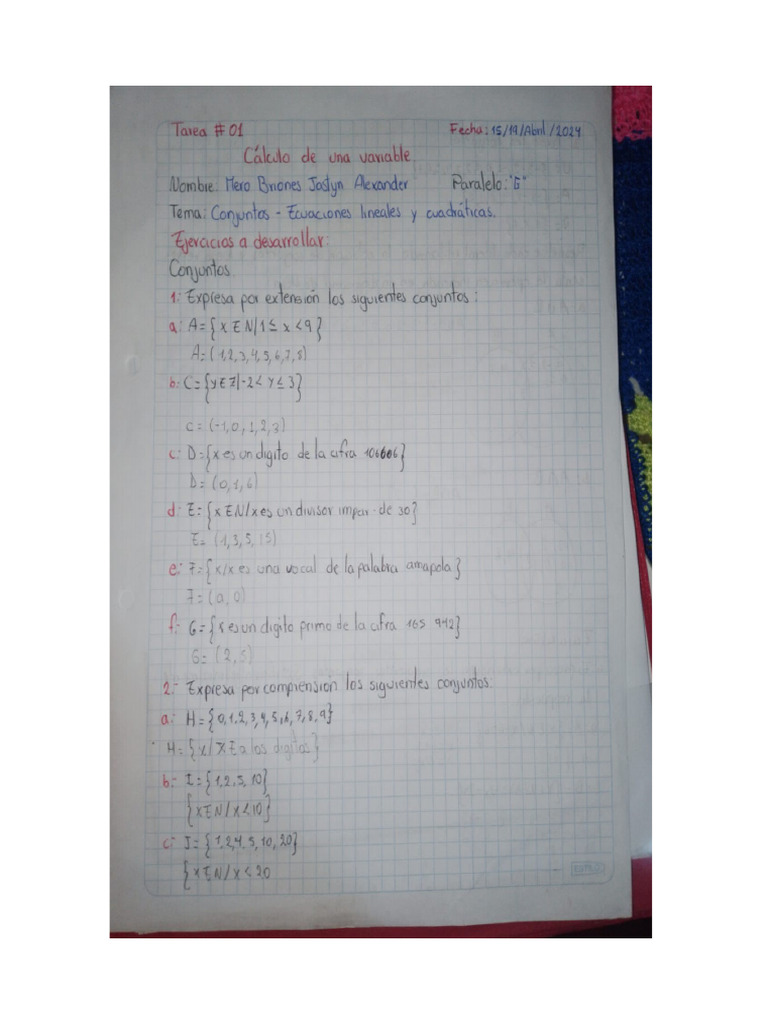 Tarea #01 Fecha: 15/19/Abril/2024
Cálculo de una variable
Nombre: Mero Briones Jostyn Alexander Paralelo: "G"
Tema: Conjuntos - Ecuaciones lineales y cuadráticas.
Ejercicios a desarrollar:
Conjuntos
1: Expresa por extensión los siguientes conjuntos:
a: A={x E N/1≤ x <9}
A=(1,2,3,4,5,6,7,8)
b: C={y E Z/-2< y ≤ 3}
C=(-1,0,1,2,3)
c: D={x es un digito de la cifra 106606}
D=(0,1,6)
d: E={x E N/x es un divisor impar de 30}
E=(1,3,5,15)
e: F={x/x es una vocal de la palabra amapola}
F=(a,o)
f: G={x es un digito primo de la cifra 165 942}
G=(2,5)
2:- Expresa por comprensión los siguientes conjuntos:
a: H={0,1,2,3,4,5,6,7,8,9}
H={x/ x E a los digitos}
b:- I={1,2,5,10}
{x E N/x<10}
c: J={1,2,4,5,10,20}
{x E N/x<20